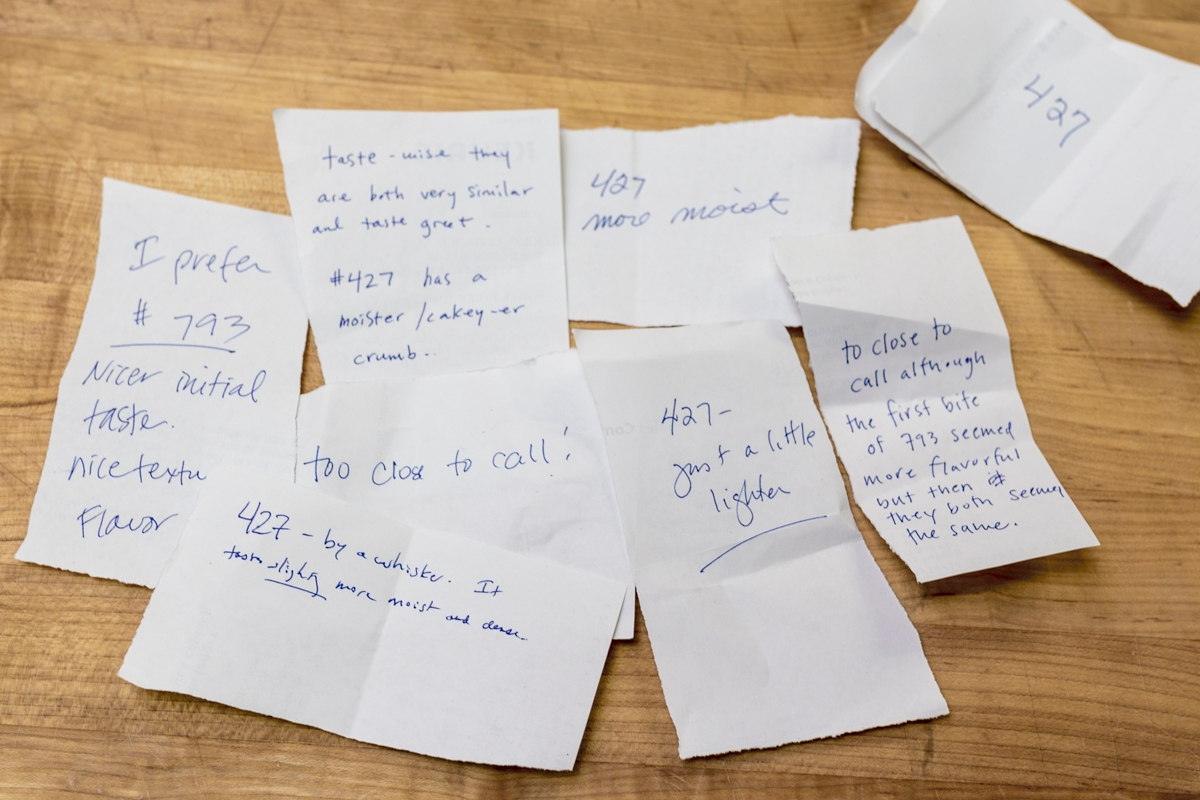 taste-wise they
are both very similar
and taste great.
#427 has a
moister/cakey-er
crumb..
427
more moist
427
I prefer
# 793
Nicer initial
taste.
nice textu
Flavor
too close to call!
427-
just a little
lighter
to close to
call although
the first bite
of 793 seemed
more flavorful
but then
they both seemed
the same.
427 - by a whisker. It
taste slightly more moist and dense.